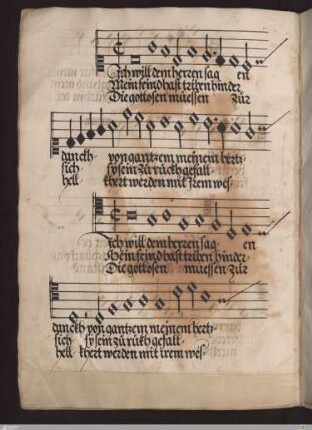 Ich will dem herren sag en
Mein feind hast triben hinder
Die gotlosen muessen zür
danckh von gantzem meinem hertz
sich sy sein zü rückh gefall
hell khert werden mit irem wes
Ich will dem herren sag en
Mein feind hast triben hinder
Die gotlosen muessen zür
danckh von gantzem meinem hertz
sich sy sein zü rükh gefall
hell khert werden mit irem wes